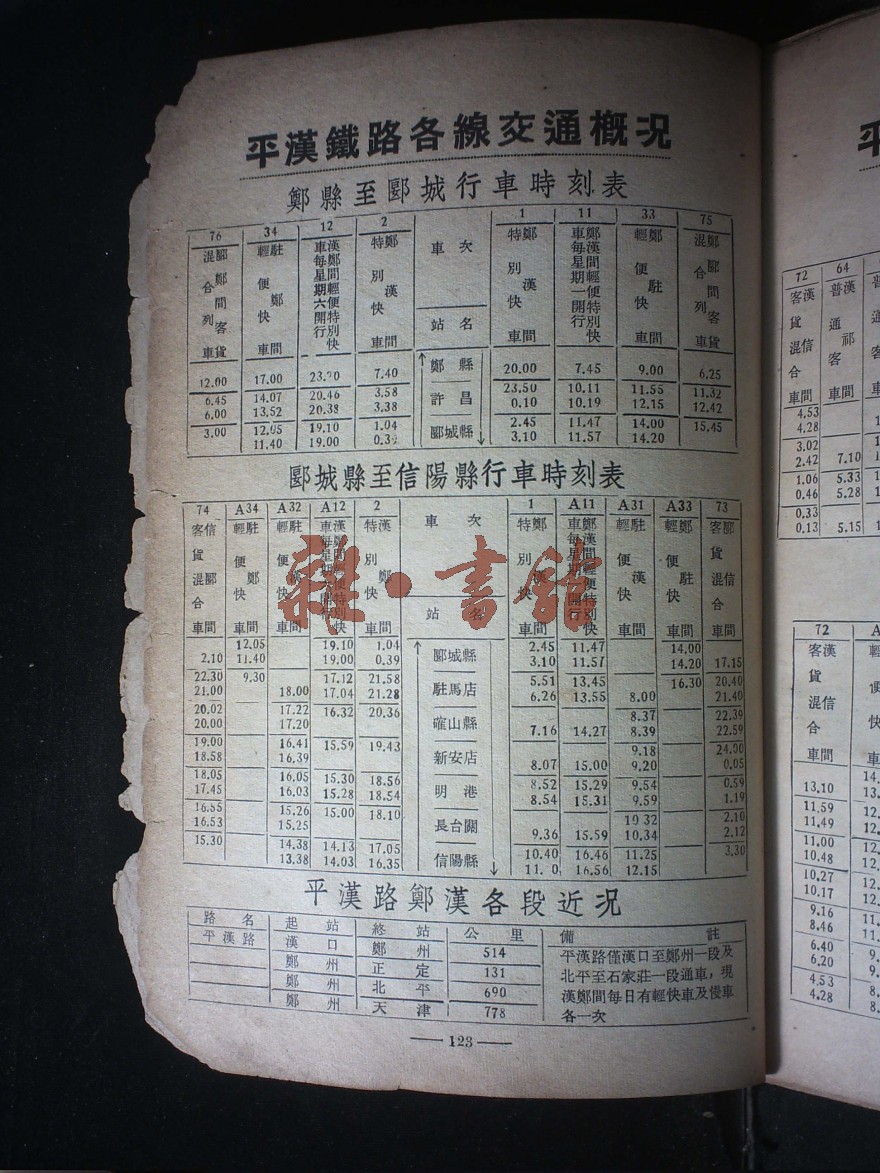 平漢鐵路各線交通概況
鄭縣至郾城行車時刻表
76 34 12 2 車次 1 11 33 75
混合列車 郾鄭間客貨 輕便快車 駐鄭間 車每星期六開行 漢鄭間輕便特別快 特別快車 鄭漢間 站名 特別快車 鄭漢間 車每星期一開行 鄭漢間輕便特別快 輕便快車 鄭駐間 混合列車 鄭郾間客貨
12.00 17.00 7.40 鄭縣 20.00 7.45 9.00 6.25
6.45 14.07 20.46 3.58 許昌 23.50 10.11 11.55 11.32
6.00 13.52 20.38 3.38 0.10 10.19 12.15 12.42
3.00 12.05 19.10 1.04 郾城縣 2.45 11.47 14.00 15.45
11.40 19.00 3.10 11.57 14.20
郾城縣至信陽縣行車時刻表
74 A34 A32 A12 2 車次 1 A11 A31 A33 73
客貨混合車 信郾間 輕便快車 駐鄭間 輕便快車 駐漢間 車每星期六開行 漢鄭間輕便特別快 特別快車 漢鄭間 站名 特別快車 鄭漢間 車每星期一開行 鄭漢間輕便特別快 輕便快車 駐漢間 輕便快車 鄭駐間 客貨混合車 郾信間
12.05 19.10 1.04 郾城縣 2.45 11.47 14.00
2.10 11.40 19.00 0.39 3.10 11.57 14.20 17.15
22.30 9.30 17.12 21.58 駐馬店 5.51 13.45 16.30 20.40
21.00 18.00 17.04 21.28 6.26 13.55 8.00 21.40
20.02 17.22 16.32 20.36 確山縣 8.37 22.39
20.00 17.20 7.16 14.27 8.39 22.59
19.00 16.41 15.59 19.43 新安店 9.18 24.00
18.58 16.39 8.07 15.00 9.20 0.05
18.05 16.05 15.30 18.56 明港 8.52 15.29 9.54 0.59
17.45 16.03 15.28 18.54 8.54 15.31 9.59 1.19
16.55 15.26 15.00 18.10 長台關 10.32 2.10
16.53 15.25 9.36 15.59 10.34 2.12
15.30 14.38 14.13 17.05 信陽縣 10.40 16.46 11.25 3.30
13.38 14.03 16.35 16.56 12.15
平漢路鄭漢各段近況
路名 起站 終站 公里 備註
平漢路 漢口 鄭州 514 平漢路僅漢口至鄭州一段及
鄭州 正定 131 北平至石家莊一段通車，現
鄭州 北平 690 漢鄭間每日有輕快車及慢車
鄭州 天津 778 各一次
123
雜·書館
平
72 64
客貨混合車 漢信間 普通客車 漢祁間
4.53
4.28
3.02
2.42 7.10
1.06 5.33
0.46 5.28
0.33
0.13 5.15
72
客貨混合車 漢信間
13.10
11.59
11.49
11.00
10.48
10.27
10.17
9.16
8.46
6.40
6.20
4.53
4.28